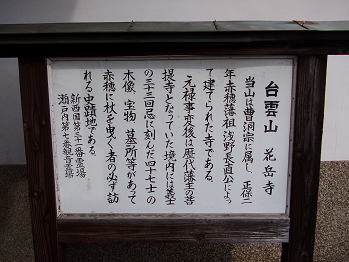 台雲山 花岳寺
当山は曹洞宗に属し 正保二
年赤穂藩祖 浅野長直公によっ
て建てられた寺である。
元禄事変後は歴代藩主の菩
提寺となっていた境内には義士
の三十三回忌に刻んだ四十七士の
木像 宝物 墓所等があって
赤穂に杖を曳く者の必ず訪
れる史蹟地である。
新西国第三十一番霊場
瀬戸内第七番観音霊場